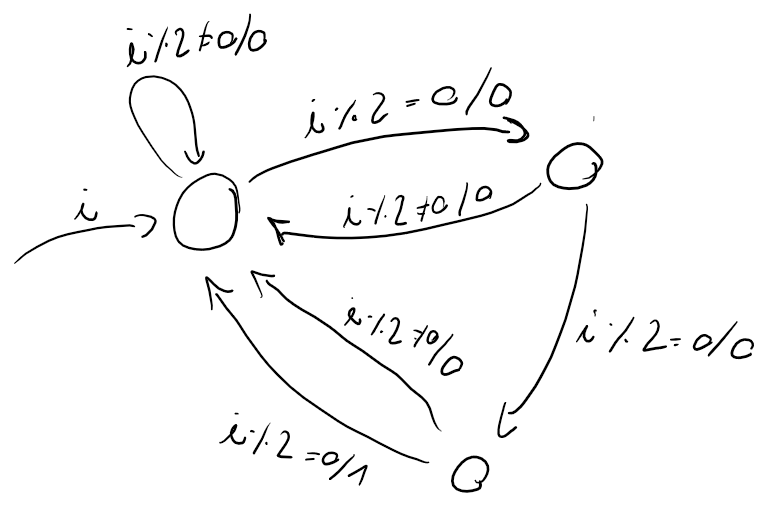 i%2≠0/0
i%2=0/0
i
i%2≠0/0
i%2≠0/0
i%2=0/0
i%2=0/1